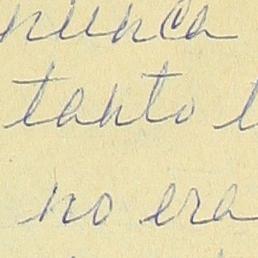 nunca
tanto
no era